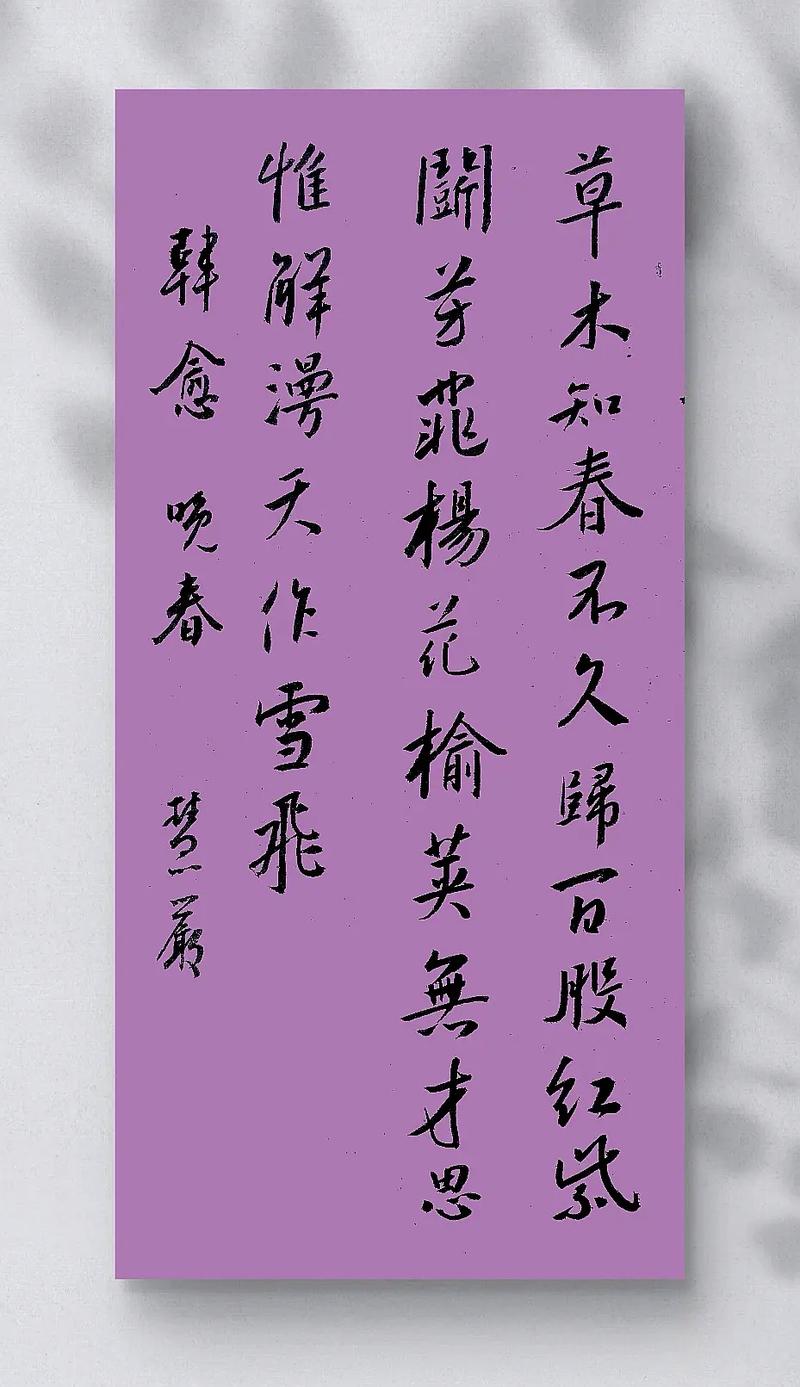 草木知春不久歸百般紅紫
鬭芳菲楊花榆莢無才思
惟解漫天作雪飛
韓愈 晚春 慧嚴